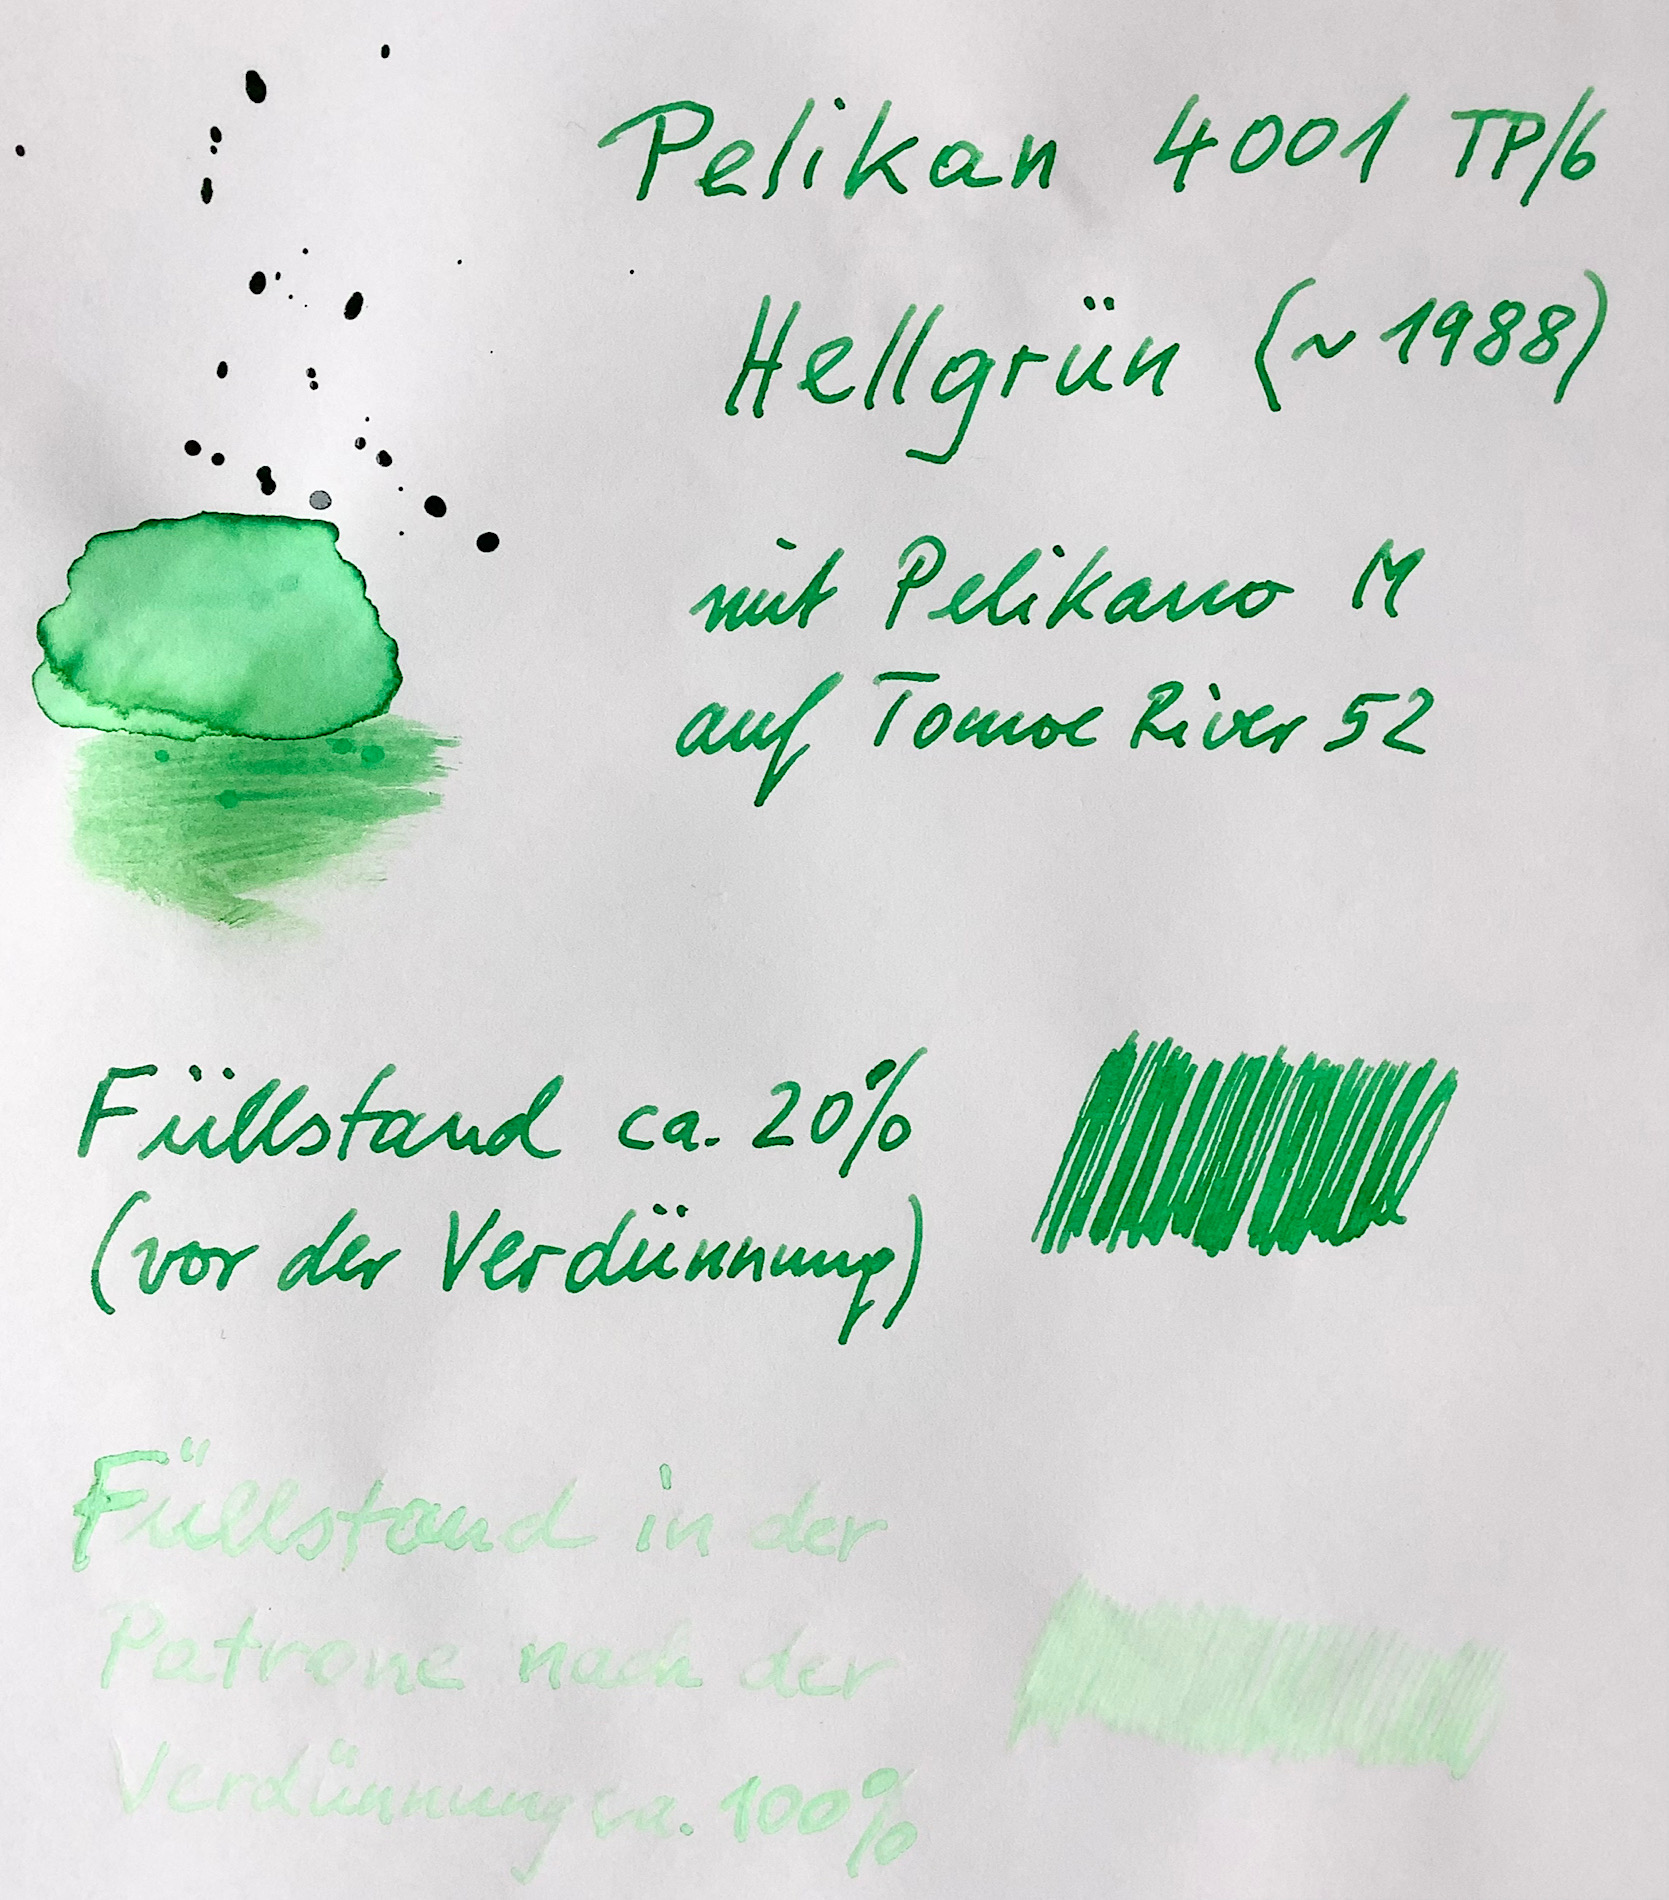 Pelikan 4001 TP/6
Hellgrün (~1988)
mit Pelikano M
auf Tomoe River 52
Füllstand ca. 20%
(vor der Verdünnung)
Füllstand in der
Patrone nach der
Verdünnung ca. 100%